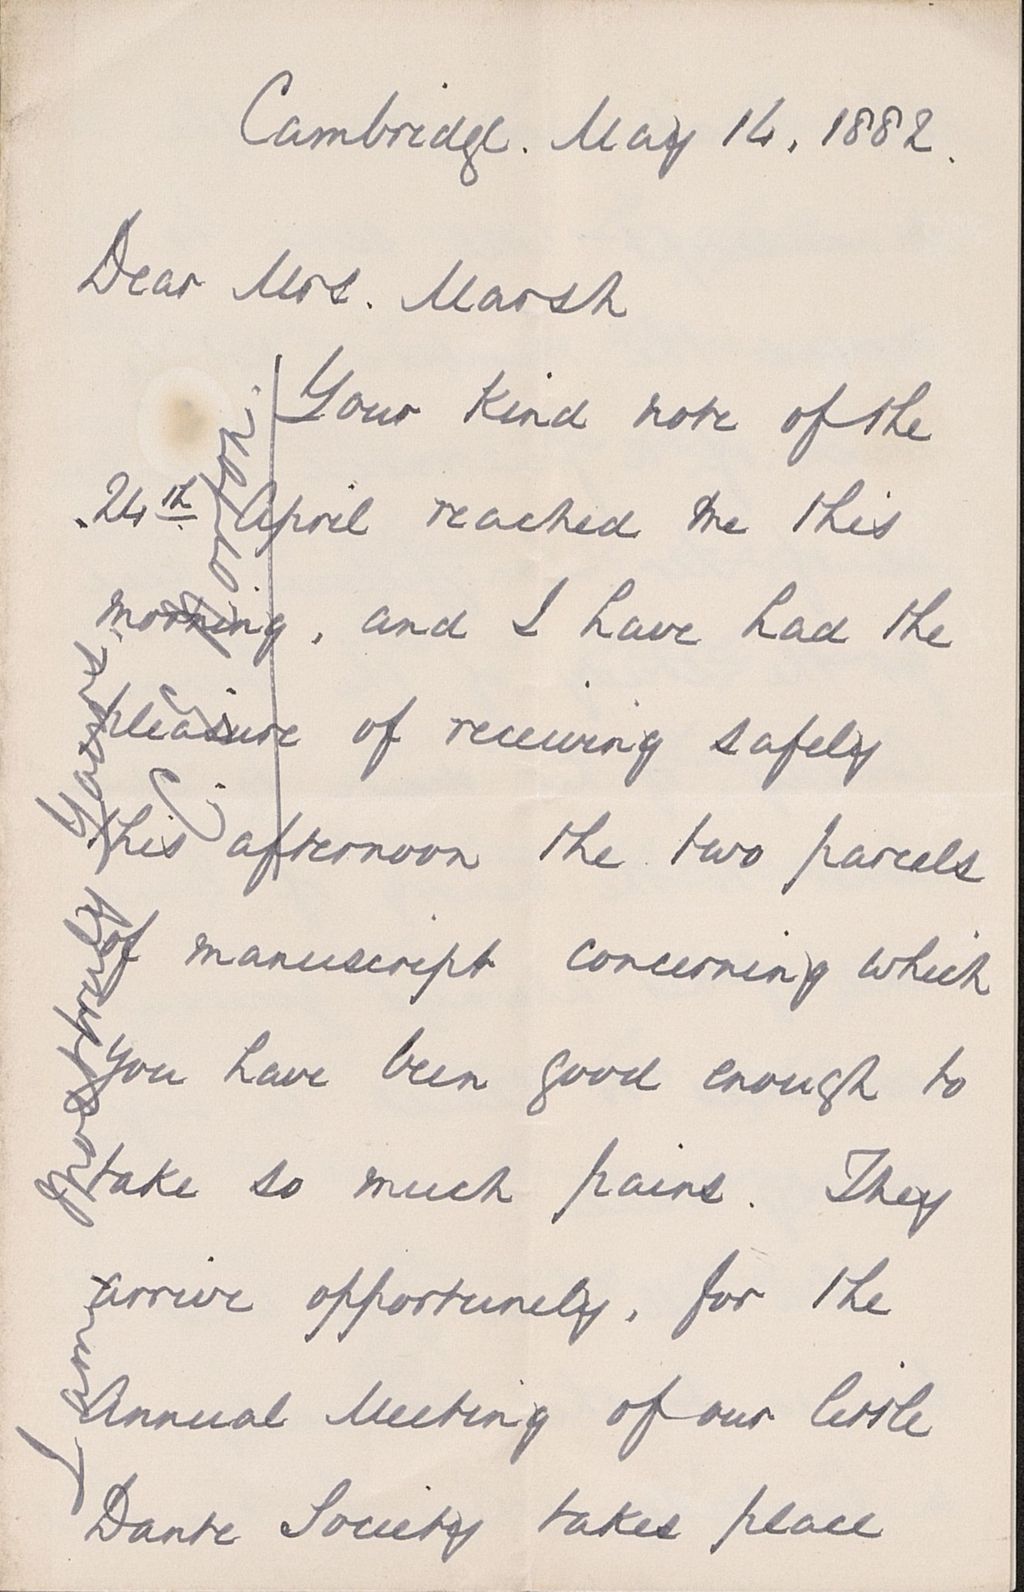 Cambridge. May 14, 1882.
Dear Mrs. Marsh
Your kind note of the
24th April reached me this
morning, and I have had the
pleasure of receiving safely
this afternoon the two parcels
of manuscript concerning which
you have been good enough to
take so much pains. They
arrive opportunely, for the
Annual Meeting of our little
Dante Society takes place
I am most truly Yours,
C. E. Norton.